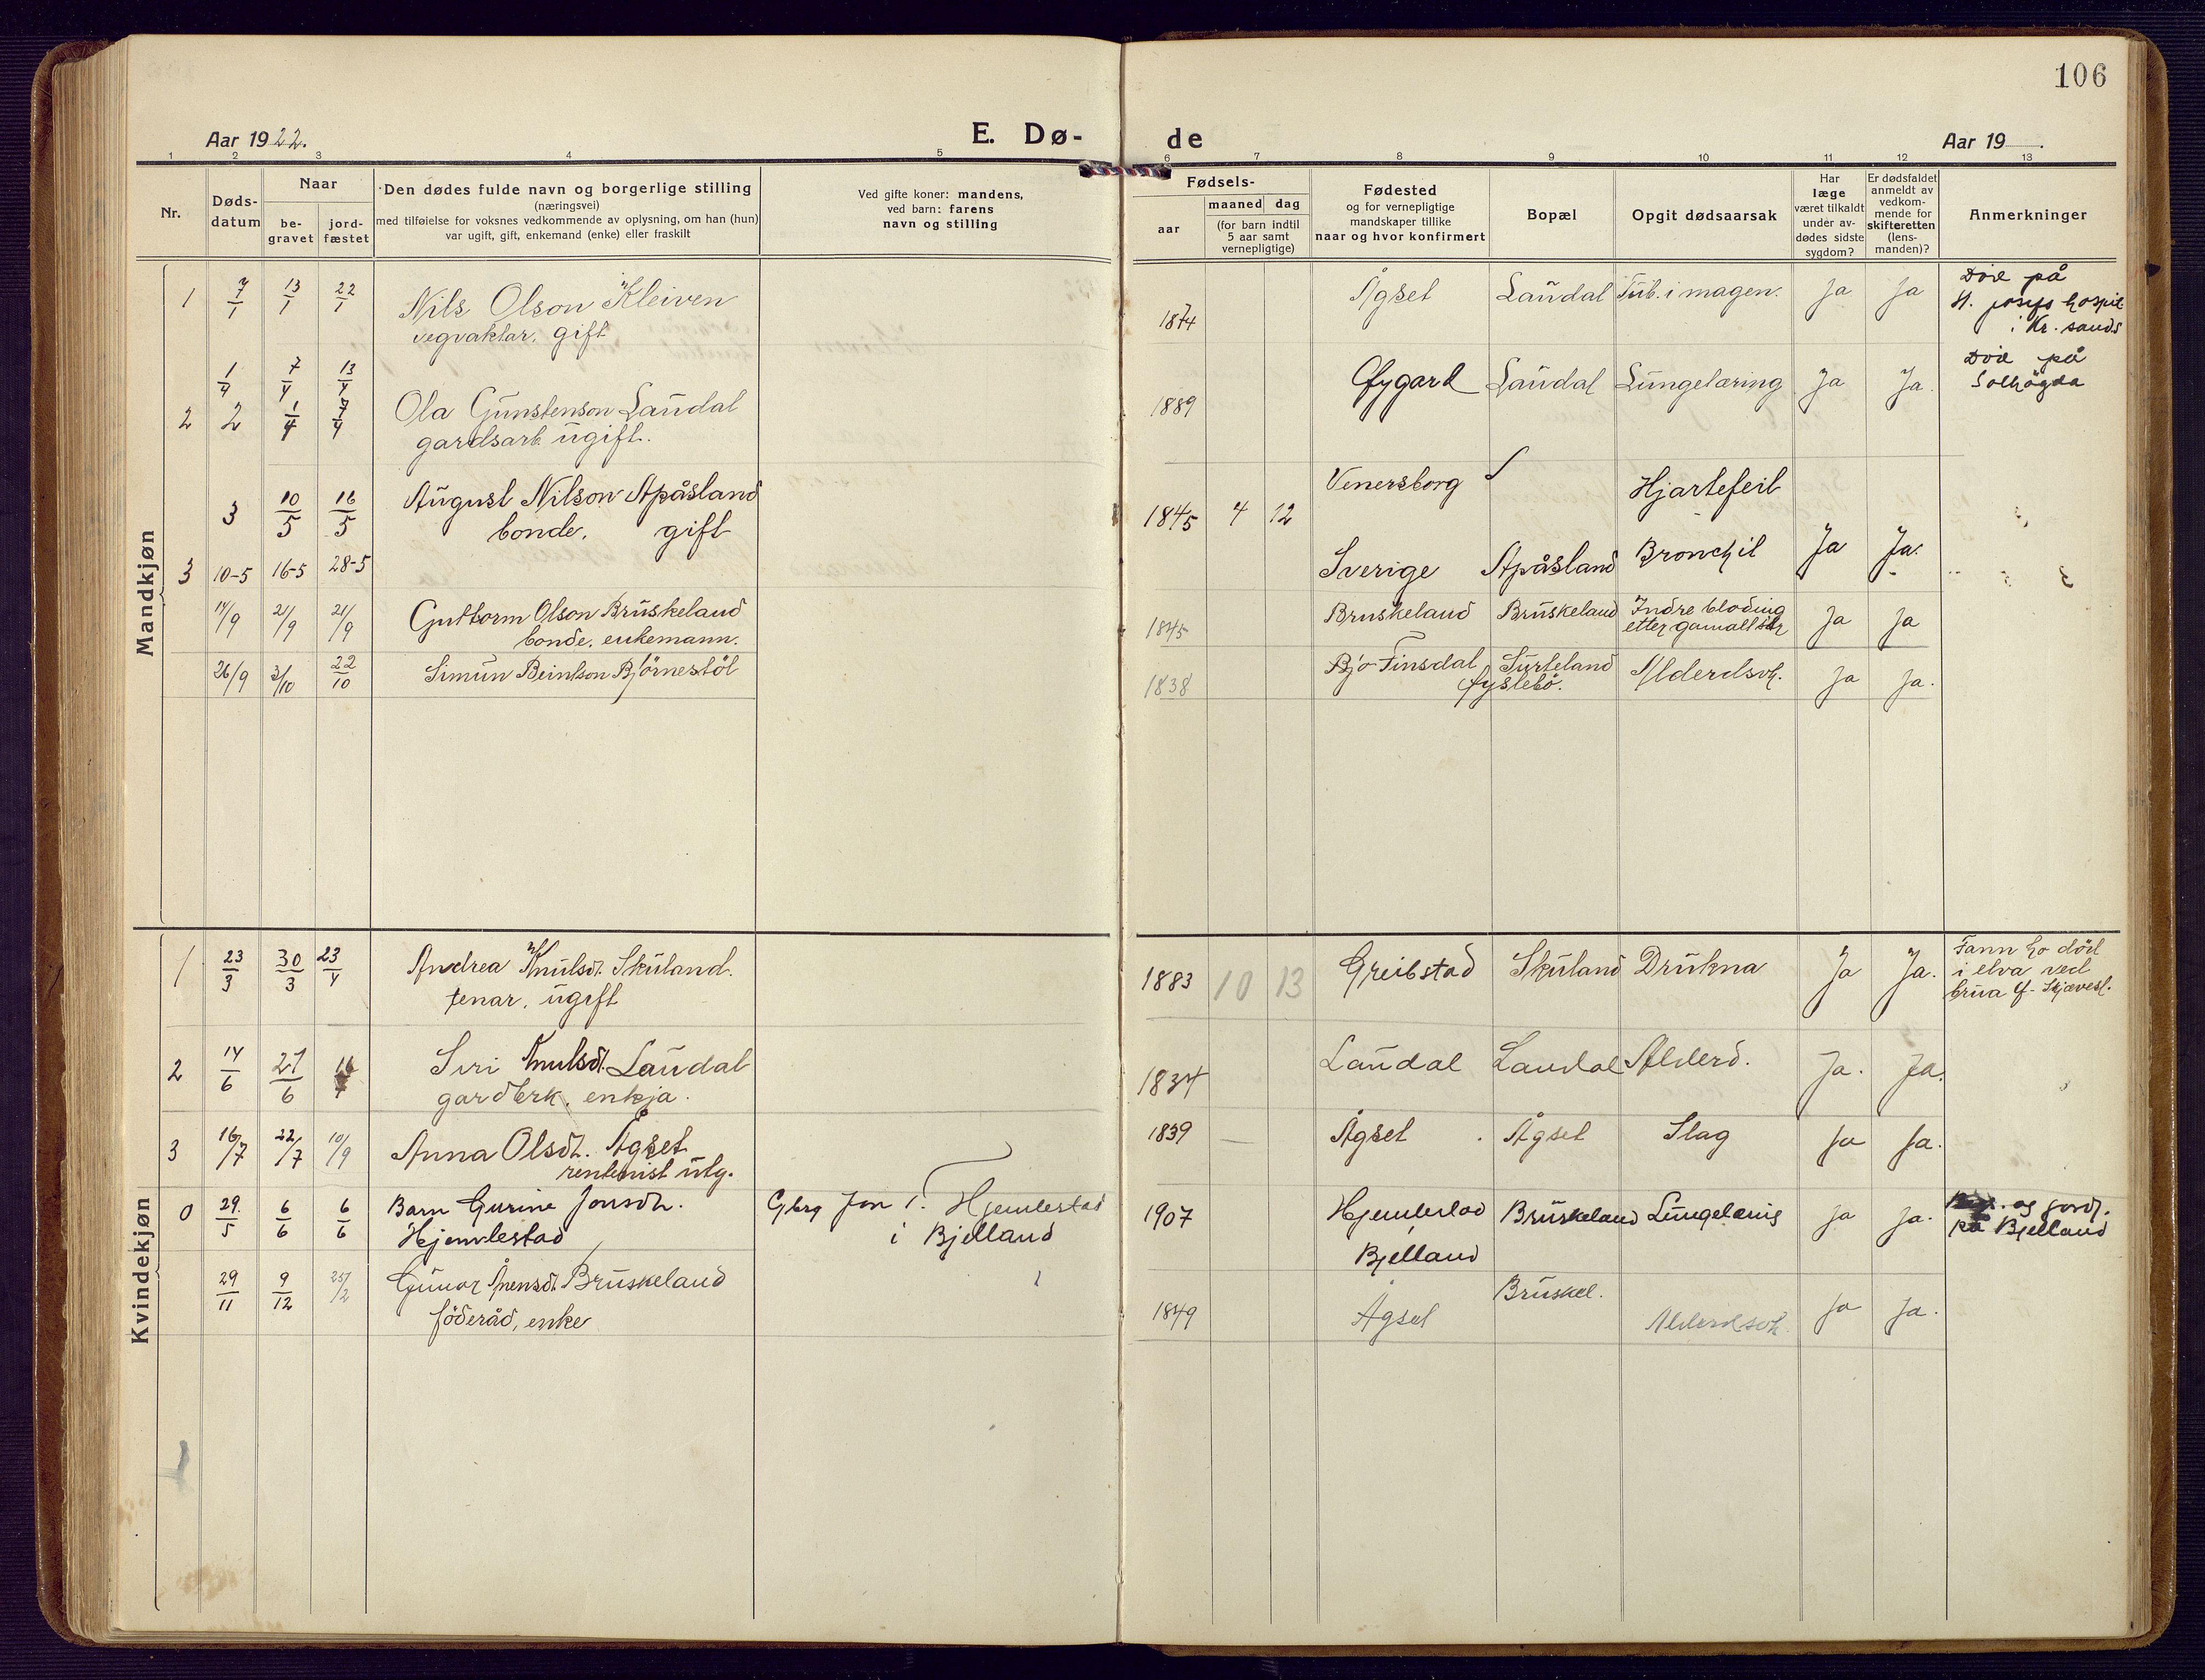 106
Aar 1922.
E. Dø-
de
Aar 19 .
1 2 3 4 5 6 7 8 9 10 11 12 13
Nr.
Døds-
datum
Naar
be-
gravet
jord-
fæstet
Den dødes fulde navn og borgerlige stilling
(næringsvei)
med tilføielse for voksnes vedkommende av oplysning, om han (hun)
var ugift, gift, enkemand (enke) eller fraskilt
Ved gifte koner: mandens,
ved barn: farens
navn og stilling
Fødsels-
aar
maaned dag
(for barn indtil
5 aar samt
vernepligtige)
Fødested
og for vernepligtige
mandskaper tillike
naar og hvor konfirmert
Bopæl
Opgit dødsaarsak
Har
læge
været tilkaldt
under av-
dødes sidste
sygdom?
Er dødsfaldet
anmeldt av
vedkom-
mende for
skifteretten
(lens-
manden)?
Anmerkninger
Mandkjøn
1 7/1 13/1 22/1 Nils Olson Kleiven
vegvaktar, gift
1874 Ågset Laudal Tub. i magen. Ja Ja
Døde på
St. josefs hospit.
i Kr. sands
1/4 7/4 13/4
2 2 1/4 7/4 Ola Gunstenson Laudal
gardsarb. ugift.
1889 Øygard Laudal Lungelæring Ja Ja.
Døde på
Solhøgda
3 10/5 16/5 August Nilson Apåsland
bonde, gift
3 10-5 16-5 28-5
1845 4 12 Venersborg
Sverige Apåsland
Hjartefeil
Bronchit Ja Ja.
17/9 21/9 21/9 Guttorm Olson Bruskeland
bonde, enkemann.
1845 Bruskeland Bruskeland Indre bløding
etter gamalt sår Ja Ja
26/9 3/10 22/10 Simun Beintson Bjørnestøl
1838 Bjo Finsdal Surteland
Øyslebø. Alderdsvh. Ja Ja.
Kvindekjøn
1 23/3 30/3 23/4 Andrea Knutsdt. Skuland.
tenar, ugift
1883 10 13 Greibstad Skuland Drukna Ja Ja.
Fann ho død
i elva ved
brua Ø- Skjævesl.
2 14/6 21/6 Siri Knutsdt. Laudal
gardbrk. enkja.
1834 Laudal Laudal Alderd. Ja. Ja.
3 16/7 22/7 10/9 Anna Olsdt. Ågset
rentenist utg.
1839 — Ågset Ågset Slag Ja Ja.
0 29/5 6/6 6/6 Barn Gurine Jonsdtr.
Hjemlestad
Gbrg Jon T. Hjemlestad
i Bjelland
1907 Hjemlestad
Bjelland
Bruskeland Lungebetens Ja Ja.
og jordf.
på Bjelland
29/11 9/12 25/2 Gunor Ånensdt. Bruskeland
föderåd, enke
1849 Ågset Bruskel. Alderdsvh. Ja Ja.